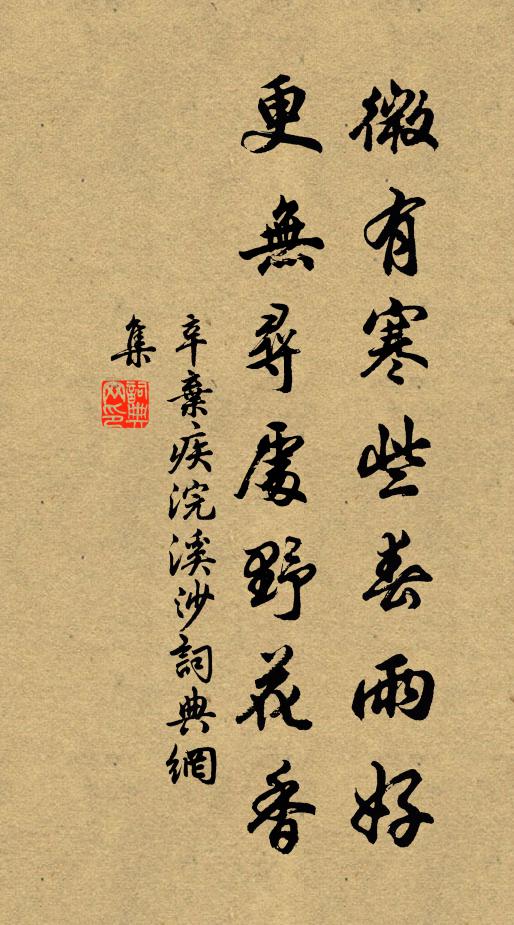 微有寒些春雨好
更無尋處野花香
辛棄疾浣溪沙詞典網
集
詞典
网印